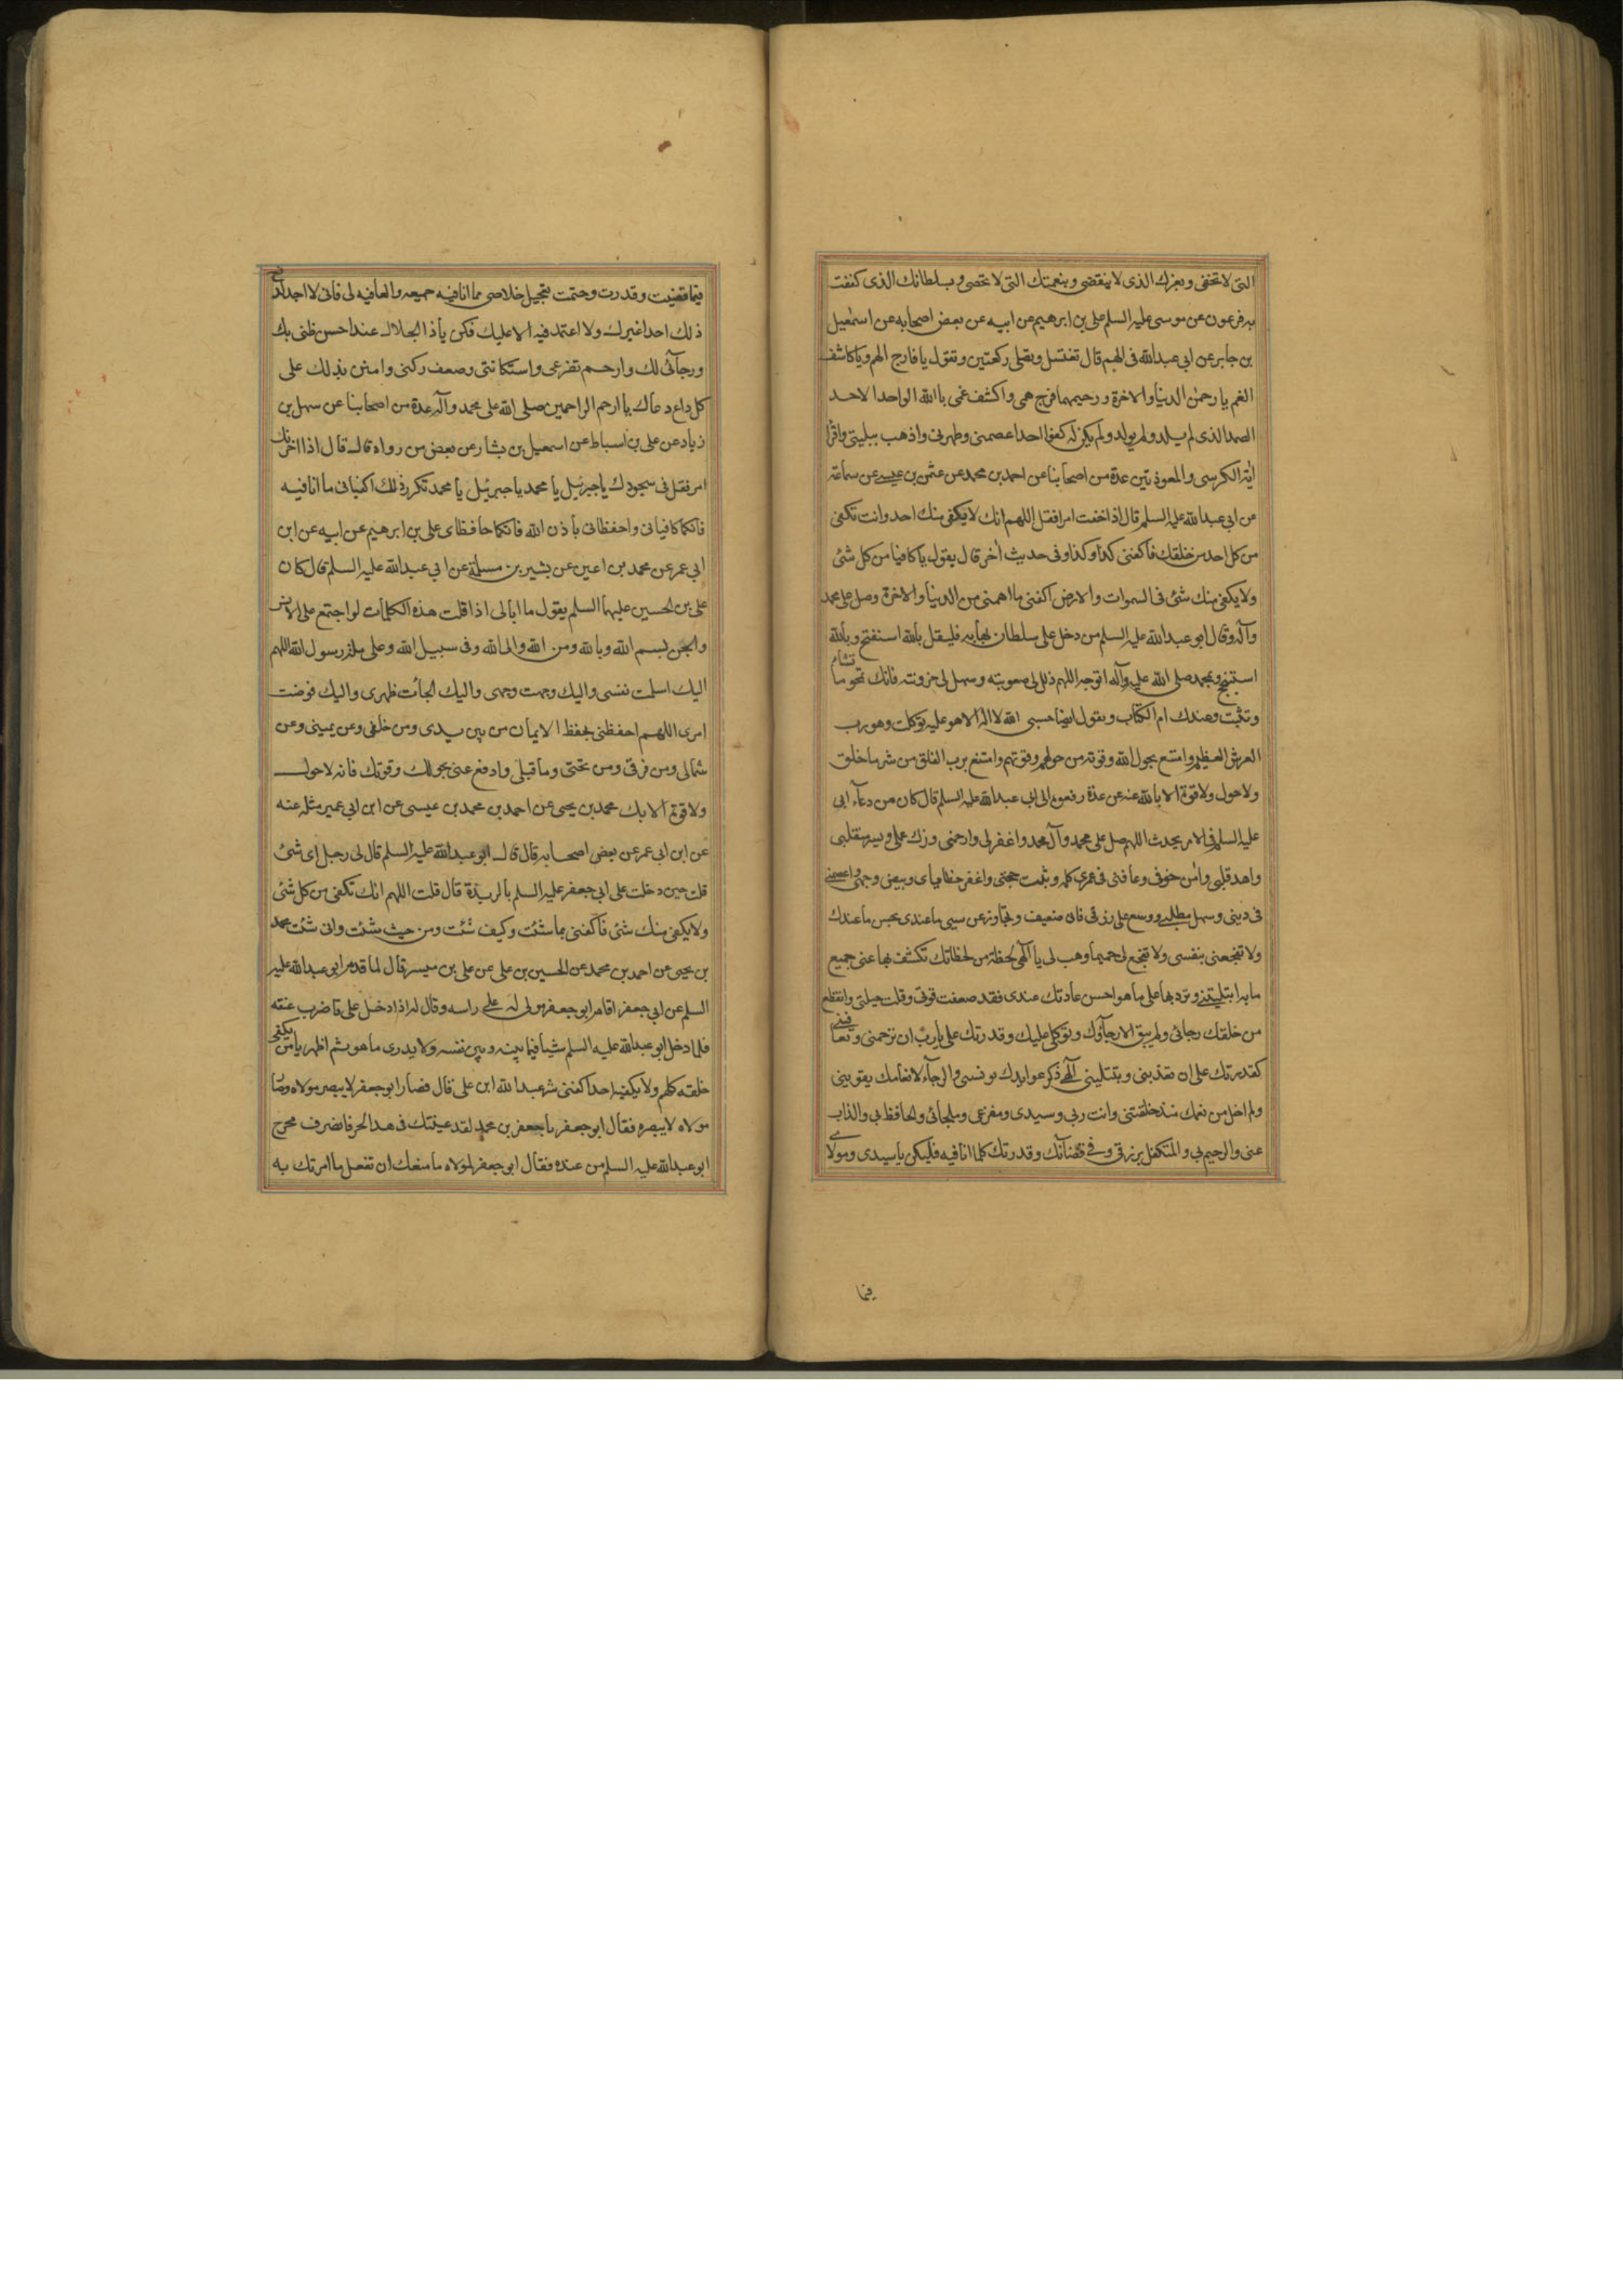 التى لا تخفى وبعزك الذى لا ينقضى وبنعمتك التى لا تحصى وبسلطانك الذى كففت
به فرعون عن موسى عليه السلم على بن ابرهيم عن ابيه عن بعض اصحابه عن اسمعيل
بن جابر عن ابى عبد الله فى الهم قال تغتسل وتصلى ركعتين وتقول يا فارج الهم ويا كاشف
الغم يا رحمن الدنيا والاخرة ورحيمهما فرج همى واكشف غمى يا الله الواحد الاحد
الصمد الذى لم يلد ولم يولد ولم يكن له كفوا احد اعصمنى وطهرنى واذهب ببليتى واقرأ
اية الكرسى والمعوذتين عدة من اصحابنا عن احمد بن محمد عن عثمن بن عيسى عن سماعة
عن ابى عبد الله عليه السلم قال اذا خفت امرا فقل اللهم انك لا يكفى منك احد وانت تكفى
من كل احد من خلقك فاكفنى كذا وكذا وفى حديث اخر قال يقول يا كافيا من كل شئ
ولا يكفى منك شئ فى السموات والارض اكفنى ما اهمنى من الدنيا والاخرة وصل على محمد
وآله وقال ابو عبد الله عليه السلم من دخل على سلطان يهابه فليقل بالله استفتح وبالله
استنجح وبمحمد صلى الله عليه وآله اتوجه اللهم ذلل لى صعوبته وسهل لى حزونته فانك تمحو ما تشاء
وتثبت وعندك ام الكتاب وبقول ايضا حسبى الله لا اله الا هو عليه توكلت وهو رب
العرش العظيم وامتنع بحول الله وقوته من حولهم وقوتهم وامتنع برب الفلق من شر ما خلق
ولا حول ولا قوة الا بالله عنه عن عدة رفعوه الى ابى عبد الله عليه السلم قال كان من دعآء ابى
عليه السلم فى الامر يحدث اللهم صل على محمد وآل محمد واغفر لى وارحمنى وزك عملى ويسر منقلبى
واهد قلبى وامن خوفى وعافنى فى عمرى كله وثبت حجتى واغفر خطاياى وبيض وجهى واعصمنى
فى دينى وسهل مطلبى ووسع على رزقى فانى ضعيف وتجاوز عن سيى ما عندى بحسن ما عندك
ولا تفجعنى بنفسى ولا تفجع لى حميما وهب لى يا الهى لحظة من لحظاتك تكشف بها عنى جميع
ما به ابتليتنى وترد بها على ما هو احسن عادتك عندى فقد ضعفت قوتى وقلت حيلتى وانقطع
من خلقك رجائى ولم يبق الا رجآؤك وتوكلى عليك وقدرتك على يا رب ان ترحمنى وتعافينى
كقدرتك على ان تعذبنى وتبتلينى الهى ذكر عوايدك يونسنى والرجآء لانعامك يقوينى
ولم اخل من نعمك منذ خلقتنى وانت ربى وسيدى ومفزعى وملجائى والحافظ بى والذاب
عنى والرحيم بى والمتكفل برزقى وفى قضآئك وقدرتك كلما انا فيه فليكن يا سيدى ومولاى
فيما
فيما قضيت وقدرت وحتمت تعجيل خلاصى مما انا فيه جميعه والعافيه لى فانى لا اجد لدفع
ذلك احدا غيرك ولا اعتمد فيه الا عليك فكن يا ذا الجلال عند احسن ظنى بك
ورجآئى لك وارحم تضرعى واستكانتى وضعف ركنى وامنن بذلك على
كل داع دعاك يا ارحم الراحمين صلى الله على محمد وآله عدة من اصحابنا عن سهل بن
زياد عن على بن اسباط عن اسمعيل بن يشار عن بعض من رواه قال قال اذا احزنك
امر فقل فى سجودك يا جبرئيل يا محمد يا جبرئيل يا محمد تكرر ذلك اكفيانى ما انا فيه
فانكما كافيانى واحفظانى بأذن الله فانكما حافظاى على بن ابرهيم عن ابيه عن ابن
ابى عمر عن محمد بن اعين عن بشير بن مسلمة عن ابى عبد الله عليه السلم قال كان
على بن الحسين عليهما السلم يقول ما ابالى اذا قلت هذه الكلمات لو اجتمع على الانس
والجن بسم الله وبالله ومن الله والى الله وفى سبيل الله وعلى ملة رسول الله اللهم
اليك اسلمت نفسى واليك وجهت وجهى واليك الجأت ظهرى واليك فوضت
امرى اللهم احفظنى بحفظ الايمان من بين يدى ومن خلفى وعن يمينى وعن
شمالى ومن فوقى ومن تحتى وما قبلى وادفع عنى بحولك وقوتك فانه لا حول
ولا قوة الا بك محمد بن يحيى عن احمد بن محمد بن عيسى عن ابن ابى عمير مثله عنه
عن ابن ابى عمر عن بعض اصحابه قال قال ابو عبد الله عليه السلم قال لى رجل اى شئ
قلت حين دخلت على ابى جعفر عليه السلم بالربذة قال قلت اللهم انك تكفى من كل شئ
ولا يكفى منك شئ فاكفنى بما شئت وكيف شئت ومن حيث شئت وانى شئت محمد
بن يحيى عن احمد بن محمد عن الحسين بن على عن على بن ميسر قال لما قدم ابو عبد الله عليه
السلم عن ابى جعفر اقام ابو جعفر مولى له على راسه وقال له اذا دخل على فاضرب عنقه
فلما دخل ابو عبد الله عليه السلم شيأ فيما بينه وبين نفسه ولا يدرى ما هو ثم اظهر يا من يكفى
خلقه كلهم ولا يكفيه احد اكفنى شر عبد الله ابن على قال فصار ابو جعفر لا يبصر مولاه وصار
مولاه لا يبصره فقال ابو جعفر يا جعفر بن محمد لقد عييتك فى هذا الحر فانصرف فخرج
ابو عبد الله عليه السلم من عنده فقال ابو جعفر لمولاه ما منعك ان تفعل ما امرتك به